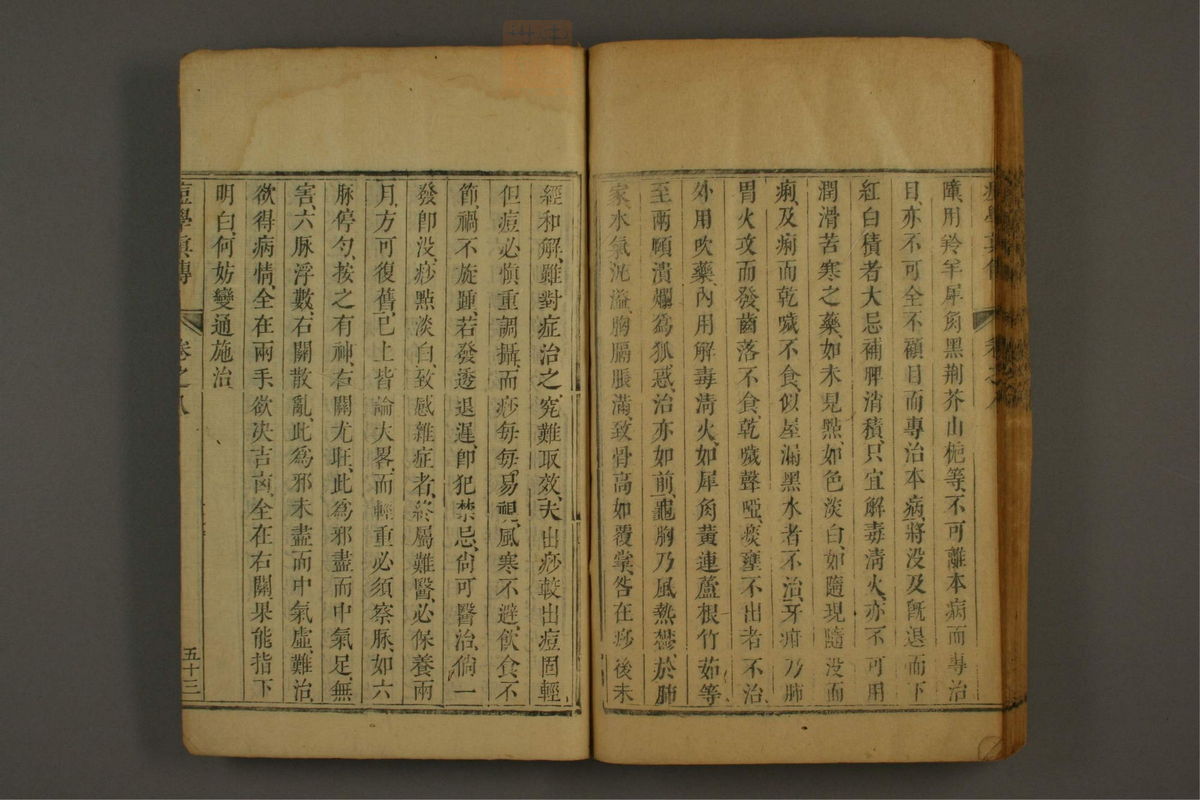 痘學真傳 卷之八
障用羚羊犀角黑荆芥山梔等、不可離本病而專治
目、亦不可全不顧目而專治本病、將没及旣退而下
紅白積者、大忌補脾消積、只宜解毒清火、亦不可用
潤滑苦寒之藥、如未見㸃、如色淡白、如隨現隨没而
痢、及痢而乾噦不食、似屋漏黑水者不治、牙疳乃肺
胃火攻而發、齒落不食、乾噦聲啞、痰壅不出者不治
外用吹藥、內用解毒清火、如犀角黃連蘆根竹茹等
至兩頤潰爛爲狐惑、治亦如前、龜胸乃風熱鬱於肺
家、水氣泛溢、胸膈脹滿、致骨高如覆掌、咎在痧後未
經和解、雖對症治之、究難取效、夫出痧較出痘固輕、
但痘必慎重調攝、而痧每每易視、風寒不避、飲食不
節、禍不旋踵、若發透退遲、卽犯禁忌、尙可醫治、倘一
發卽没、痧㸃淡白、致感雜症者、終屬難醫、必保養兩
月、方可復舊、已上皆論大畧、而輕重必須察脉、如六
脉停勻、按之有神、右關尤旺、此爲邪盡而中氣足、無
害、六脉浮數、右關散亂、此爲邪未盡而中氣虛、難治、
欲得病情、全在兩手、欲决吉凶、全在右關、果能指下
明白、何妨變通施治
痘學眞傳 卷之八 五十三